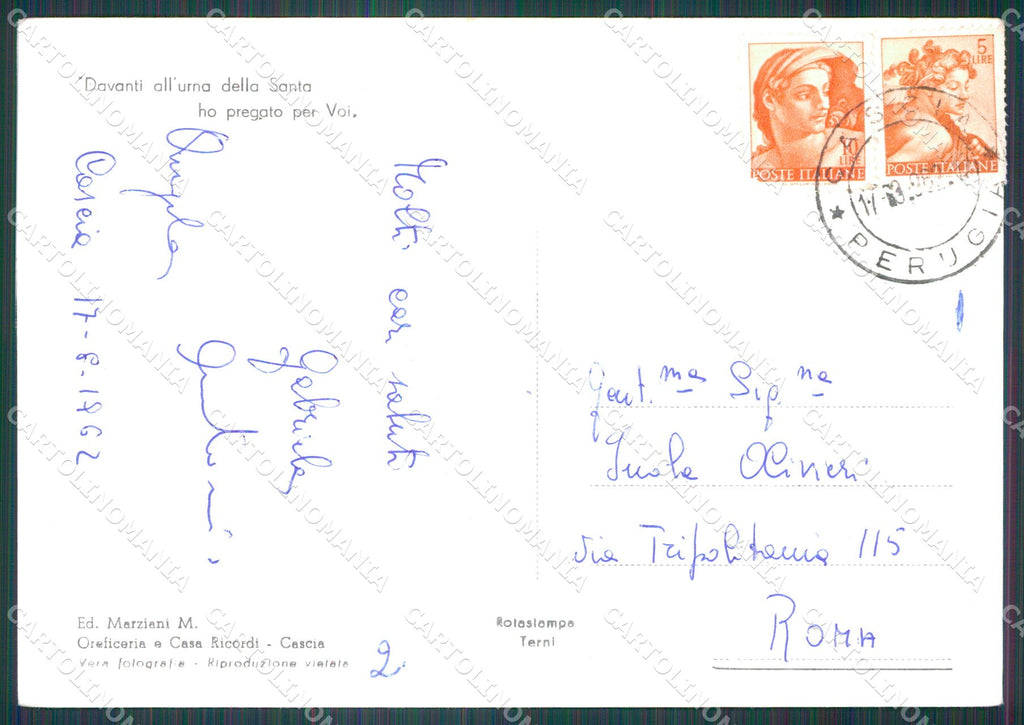 "Davanti all'urna della Santa
ho pregato per Voi.
Cascia 17-8-1962
Angela
Gabriella
Molti cari saluti
10
LIRE
POSTE ITALIANE
5
LIRE
POSTE ITALIANE
PERUGIA
Gent.ma Sig.na
Olivieri
via Tripolitania 115
ROMA
Ed. Marziani M.
Oreficeria e Casa Ricordi - Cascia
Vera fotografia - Riproduzione vietata
Rotastampa
Terni
2
CARTOLINOMANIA